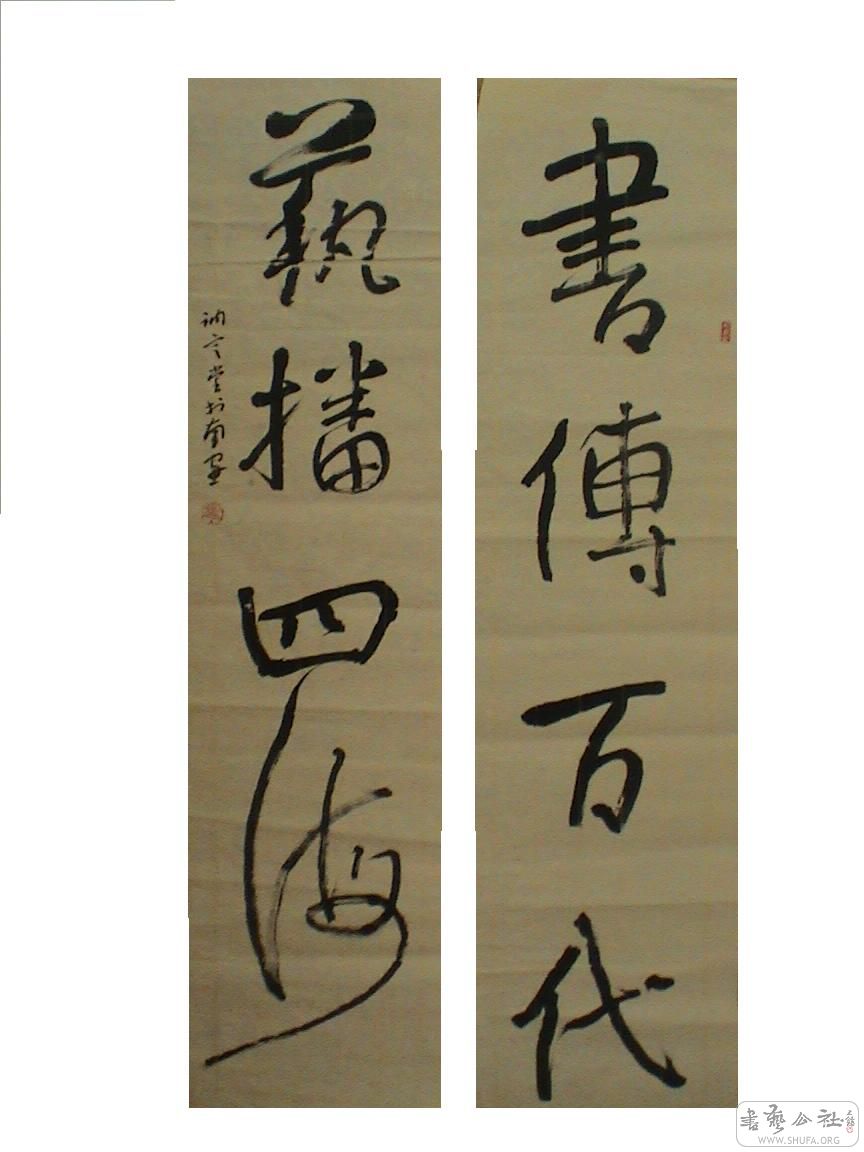 書傳百代
藝播四海
訥言堂於南寧
書藝公社
WWW.SHUFA.ORG